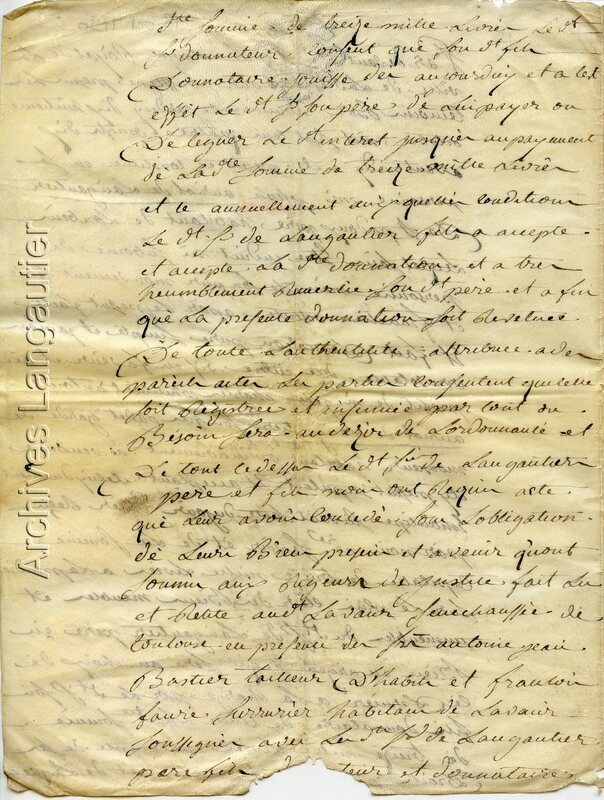 dte somme de treize mille Livres Le dt
sr donnateur consent que son dt fils
Donnataire jouisse des aujourduy et a cet
effet Le dt sr son pere de Luy payer ou
De leguer Le dt interet jusques au payement
de La dte somme de treize mille Livres
et ce annuellement aux quelles conditions
Le dt sr de Laugautier fils a accepté
et accepte La dte donnation et a tres
heumblement Remertié son dt pere et a fin
que La presente donnation soit Revetue
De toute Lauthentisité attribuée a des
pareils actes Les parties consentent quelle
soit Registree et insinuée par tout ou
Besoin sera au dezir de Lordonnance et
De tout ce dessus Le dt sr de Laugautier
pere et fils mont Requis acte
que Leur avois concedé sous Lobligation
de Leurs Biens presens et avenir quont
soumis aux Rigeurs de justice fait Lu
et Recité audt Lavaur Senechaussée de
toulouse en presence des srs antoine jean
Bastier tailleur Dhabits et francois
faure serrurier habitans de Lavaur
soussignes avec Les dts srs de Laugautier
pere fils donnateur et donnataire
Archives Langautier